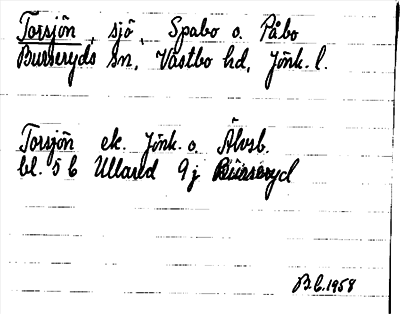 Torsjön, sjö, Spabo o. Påbo
Burseryds sn, Västbo hd, Jönk. l.
Torsjön ek. Jönk. o. Älvsb.
bl. 5 b Ullared 9 j Burseryd
B.C. 1958